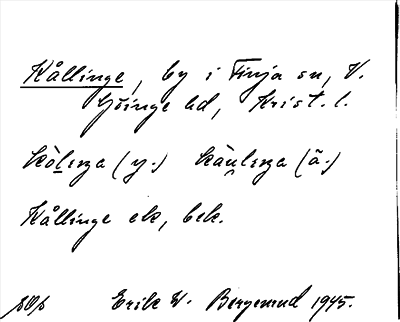 Kållinge, by i Finja sn, V.
Göinge hd, Krist. l.
kòlenga (y.) kàu̯lenga (ä.)
Kållinge ek, bek.
Erik W. Bergemud 1945.